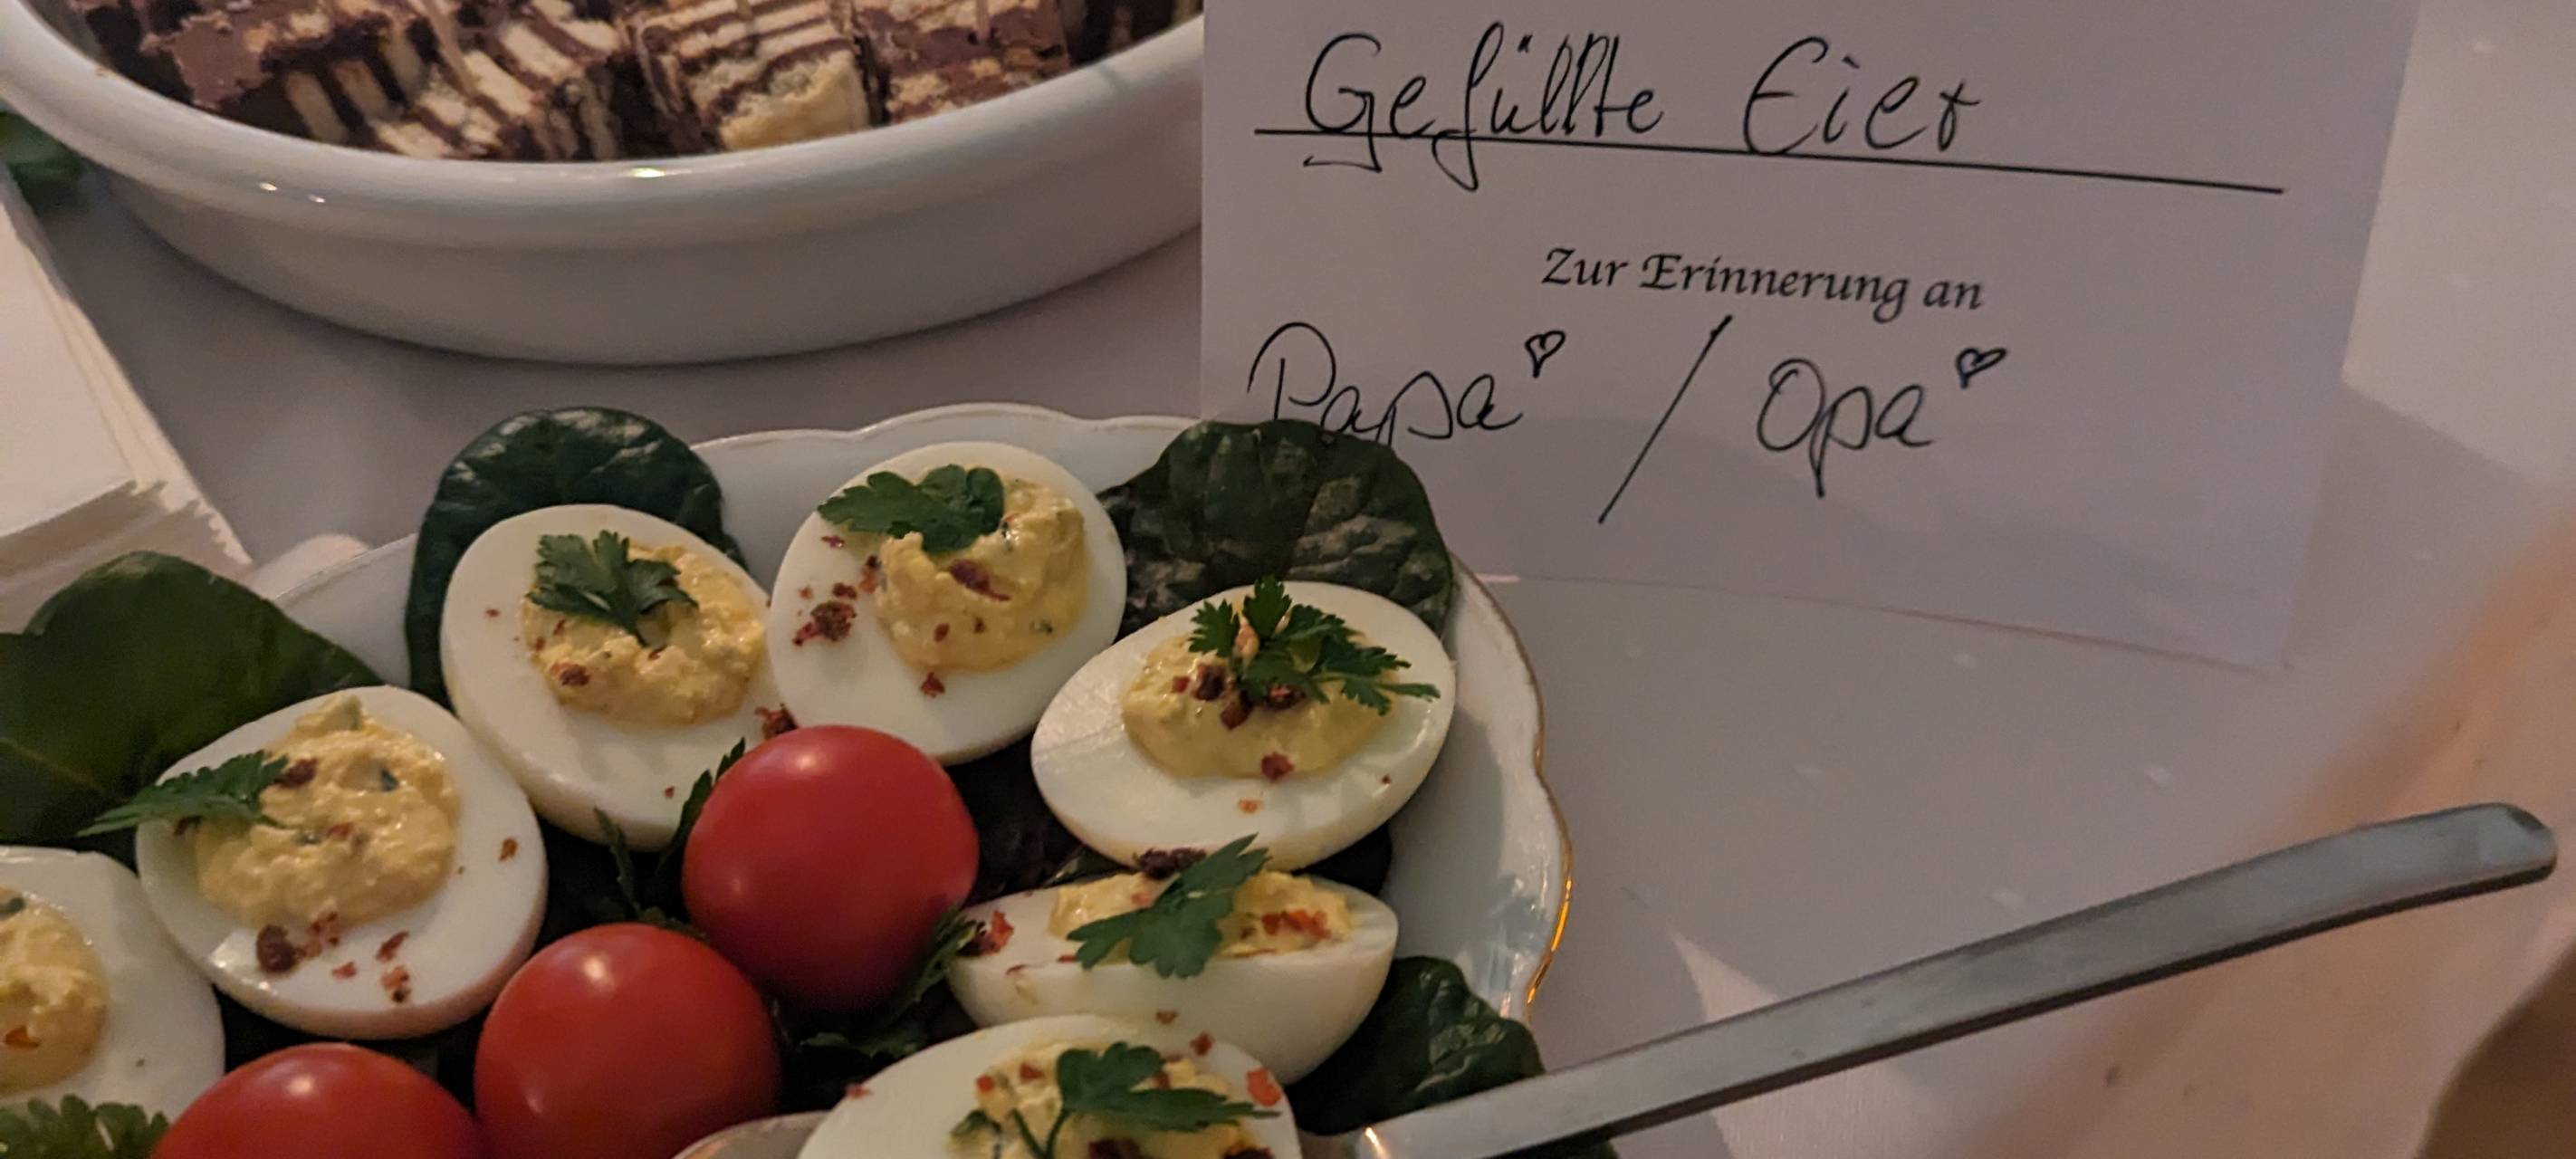 Gefüllte Eier
Zur Erinnerung an
Papa♡ / Opa♡